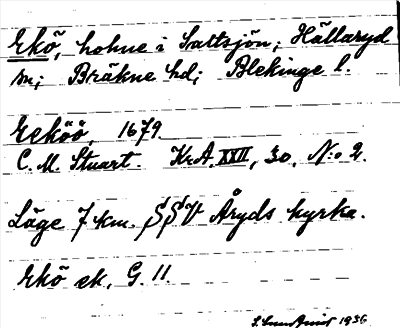 Ekö, holme i Saltsjön; Hällaryd
sn; Bräkne hd; Blekinge l.
Eeköö, 1679.
C. M. Stuart. Kr.A. XXII, 30, N:o 2.
Läge 7 km. SSV Åryds kyrka.
Ekö ek, G. 11.
1936